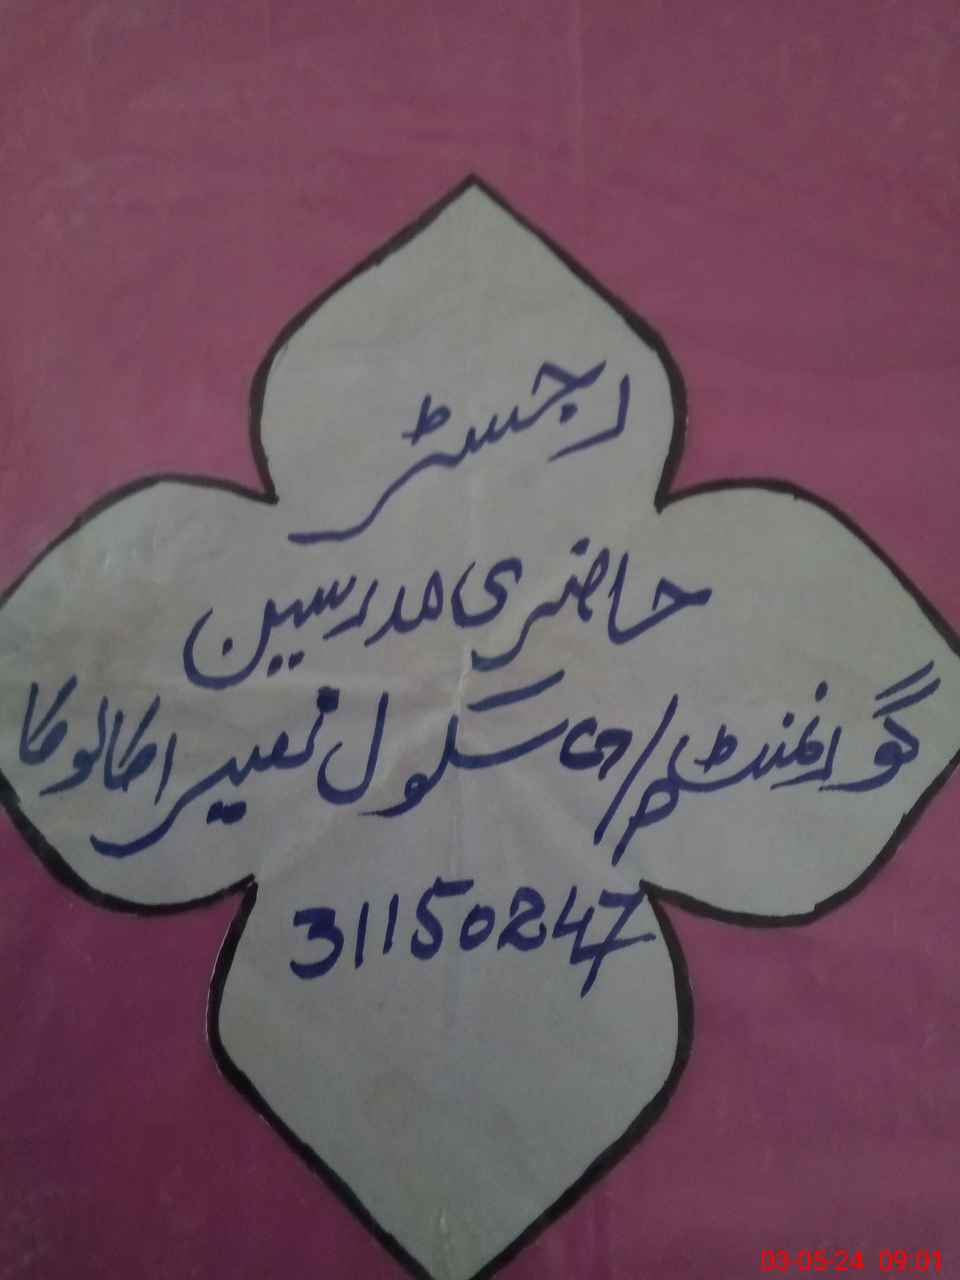 رجسٹر
حاضری مدرسین
گورنمنٹ م/ی سکول نصیر
31150247
03-05-24 09:01